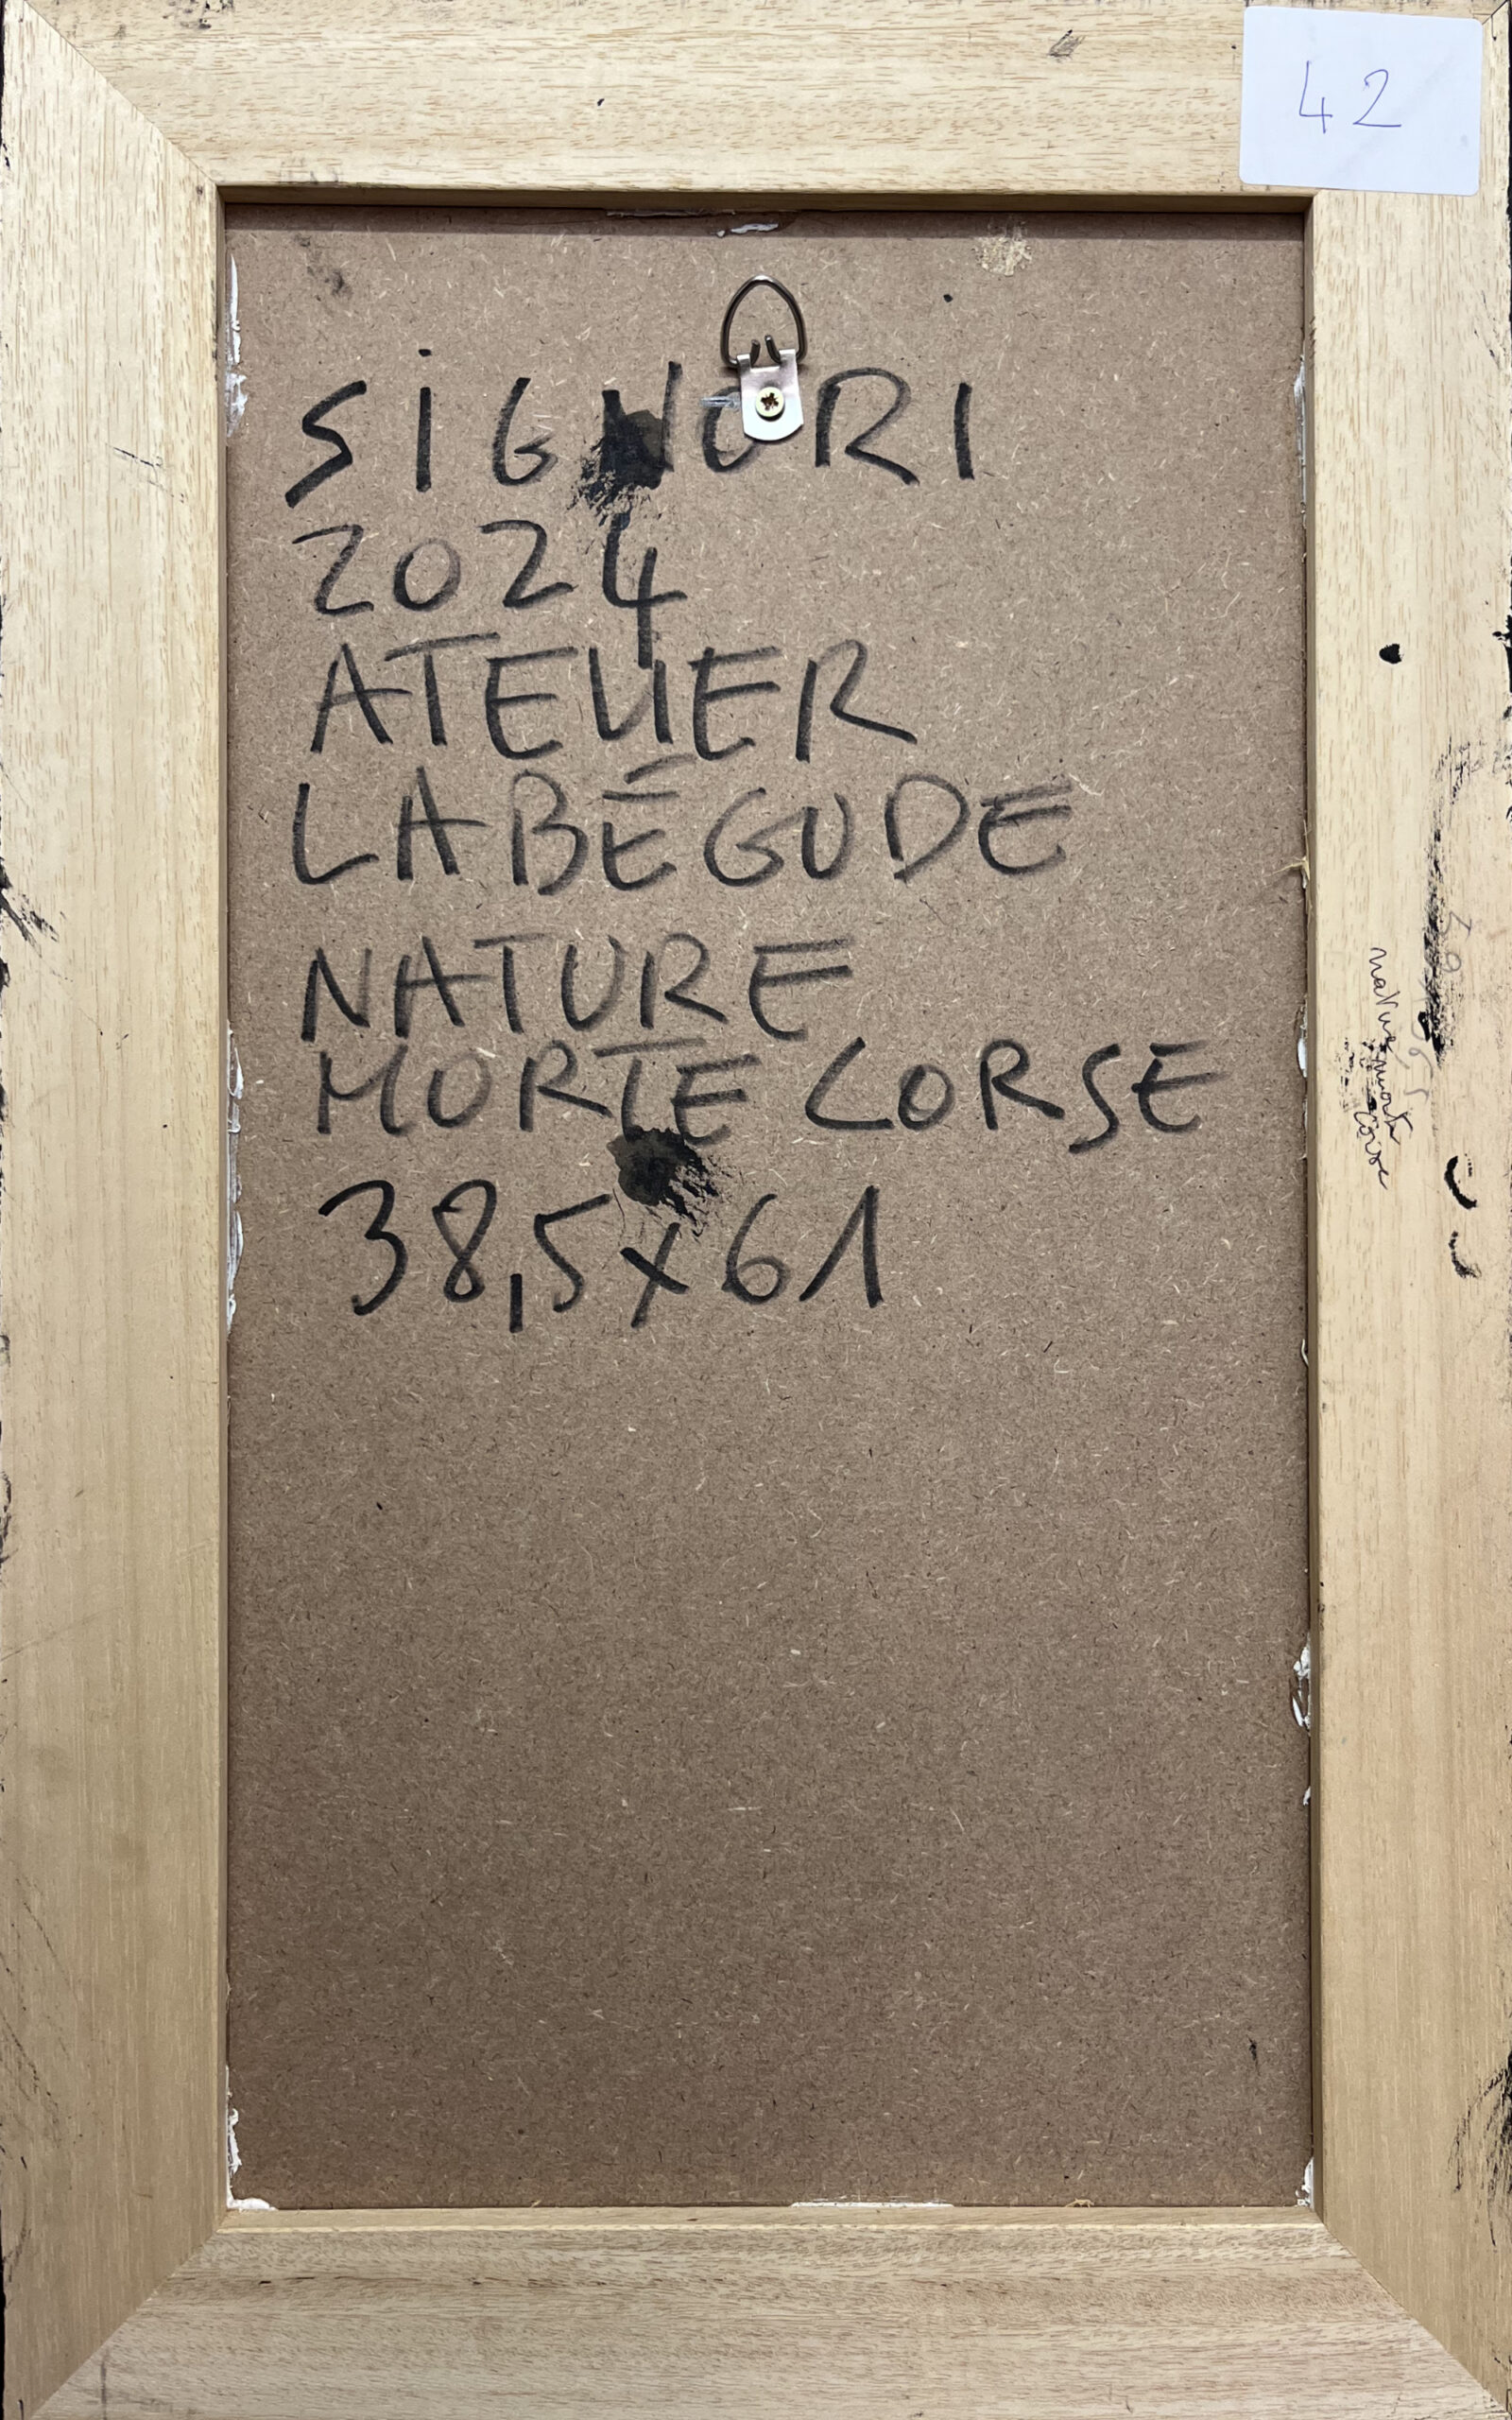 42
SIGNORI
2024
ATELIER
LABÉGUDE
NATURE
MORTE CORSE
38,5x61
nature
morte
corse